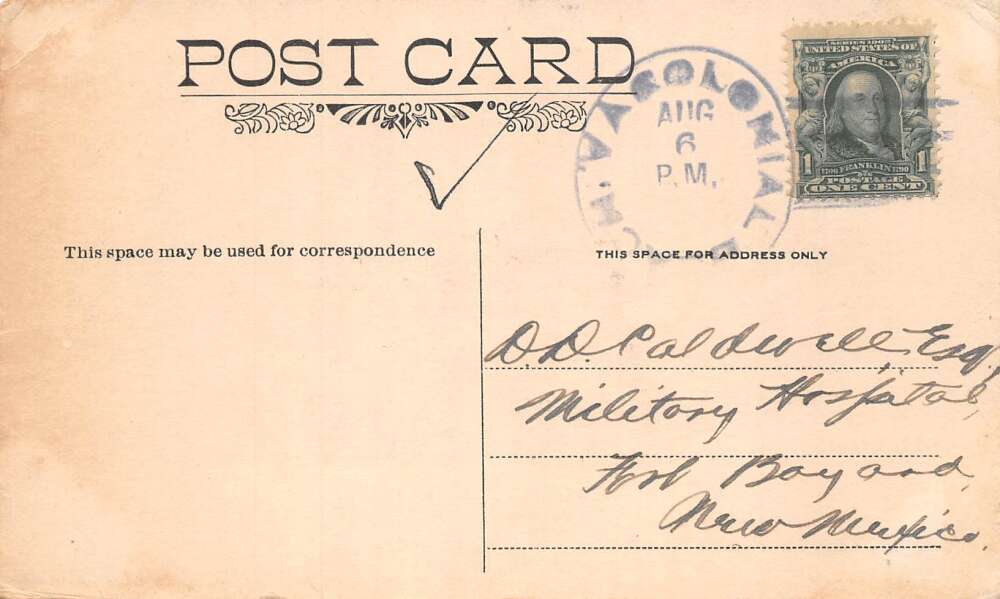 POST CARD
COLONIAL BEACH, VA.
AUG
6
P.M.
SERIES 1902
UNITED STATES OF
AMERICA
1706 FRANKLIN 1790
1 POSTAGE 1
ONE CENT
This space may be used for correspondence
THIS SPACE FOR ADDRESS ONLY
D. D. Caldwell, Esq,
Military Hospital,
Fort Bayard,
New Mexico.